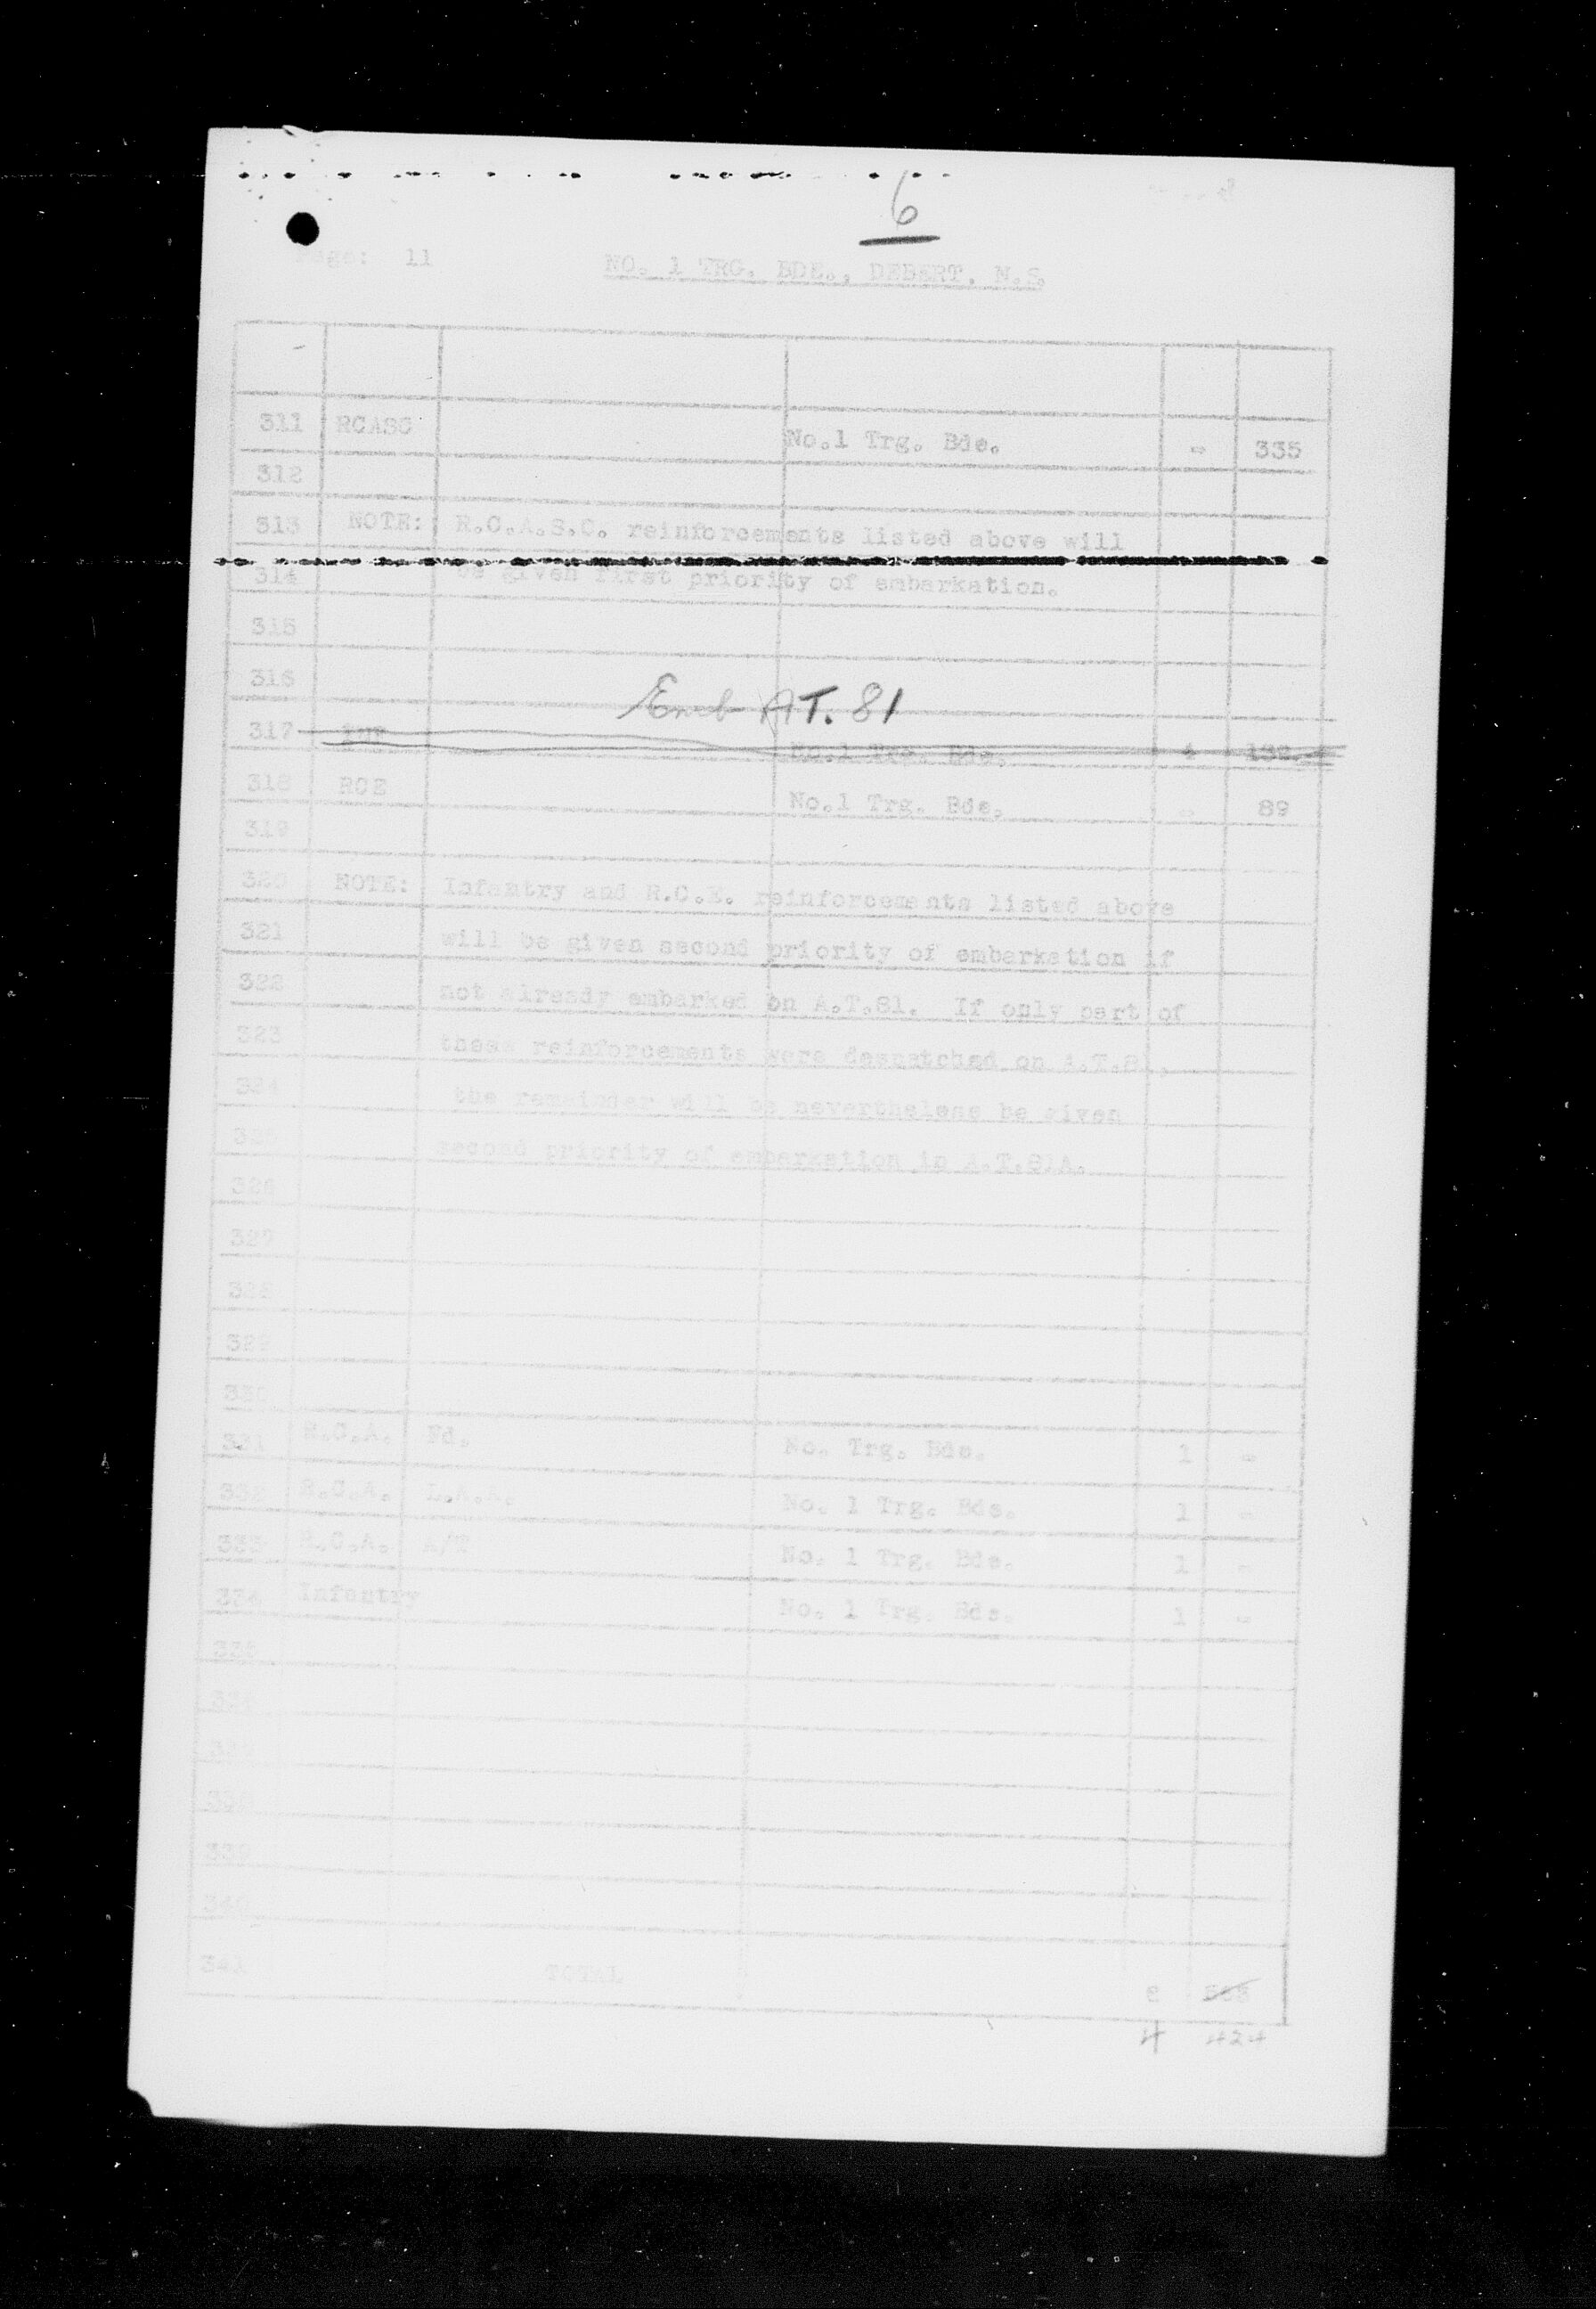 6
Page: 11
NO. 1 TRG. BDE., DEBERT, N.S.
311 RCASC No.1 Trg. Bde. - 335
312
313 NOTE: R.C.A.S.C. reinforcements listed above will
314 be given first priority of embarkation.
315
316
Emb AT. 81
317 INF No.1 Trg. Bde. 4
318 RCE No.1 Trg. Bde. - 89
319
320 NOTE: Infantry and R.C.E. reinforcements listed above
321 will be given second priority of embarkation if
322 not already embarked on A.T.81. If only part of
323 these reinforcements were despatched on A.T.81,
324 the remainder will be nevertheless be given
325 second priority of embarkation in A.T.81A.
326
327
328
329
330
331 R.C.A. Fd. No. Trg. Bde. 1 -
332 R.C.A. L.A.A. No. 1 Trg. Bde. 1 -
333 R.C.A. A/T No. 1 Trg. Bde. 1 -
334 Infantry No. 1 Trg. Bde. 1 -
335
336
337
338
339
340
341 TOTAL 8
4 424